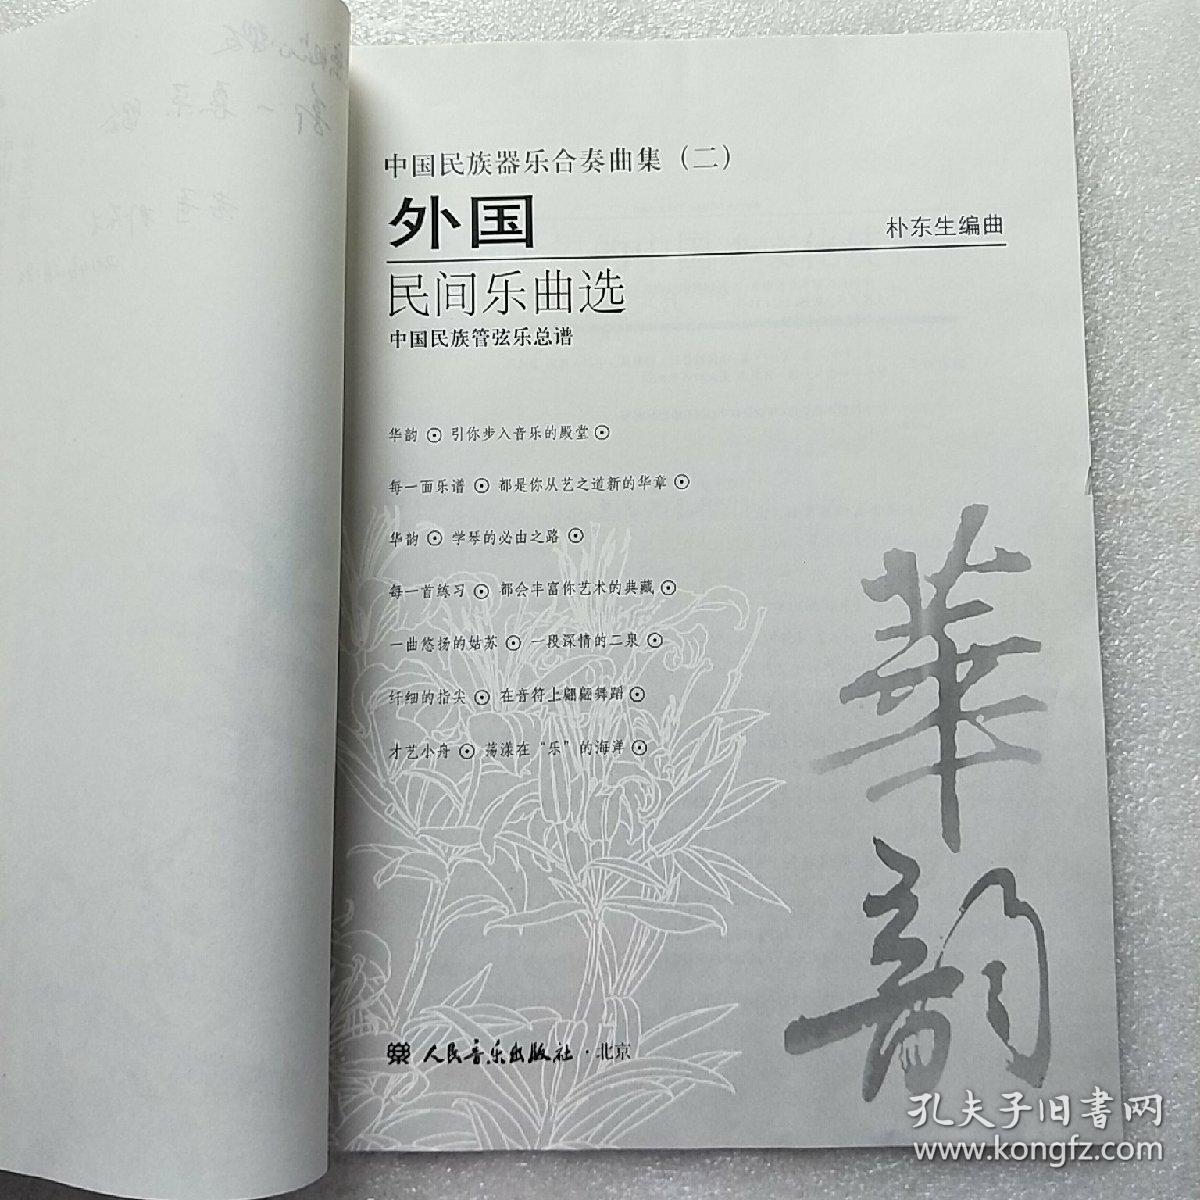 中国民族器乐合奏曲集（二）
外国
朴东生编曲
民间乐曲选
中国民族管弦乐总谱
华韵⊙引你步入音乐的殿堂⊙
每一面乐谱⊙都是你从艺之道新的华章⊙
华韵⊙学琴的必由之路⊙
每一首练习⊙都会丰富你艺术的典藏⊙
一曲悠扬的姑苏⊙一段深情的二泉⊙
纤细的指尖⊙在音符上翩跹舞蹈⊙
才艺小舟⊙荡漾在“乐”的海洋⊙
華韵
人民音乐出版社·北京
孔夫子旧书网
www.kongfz.com